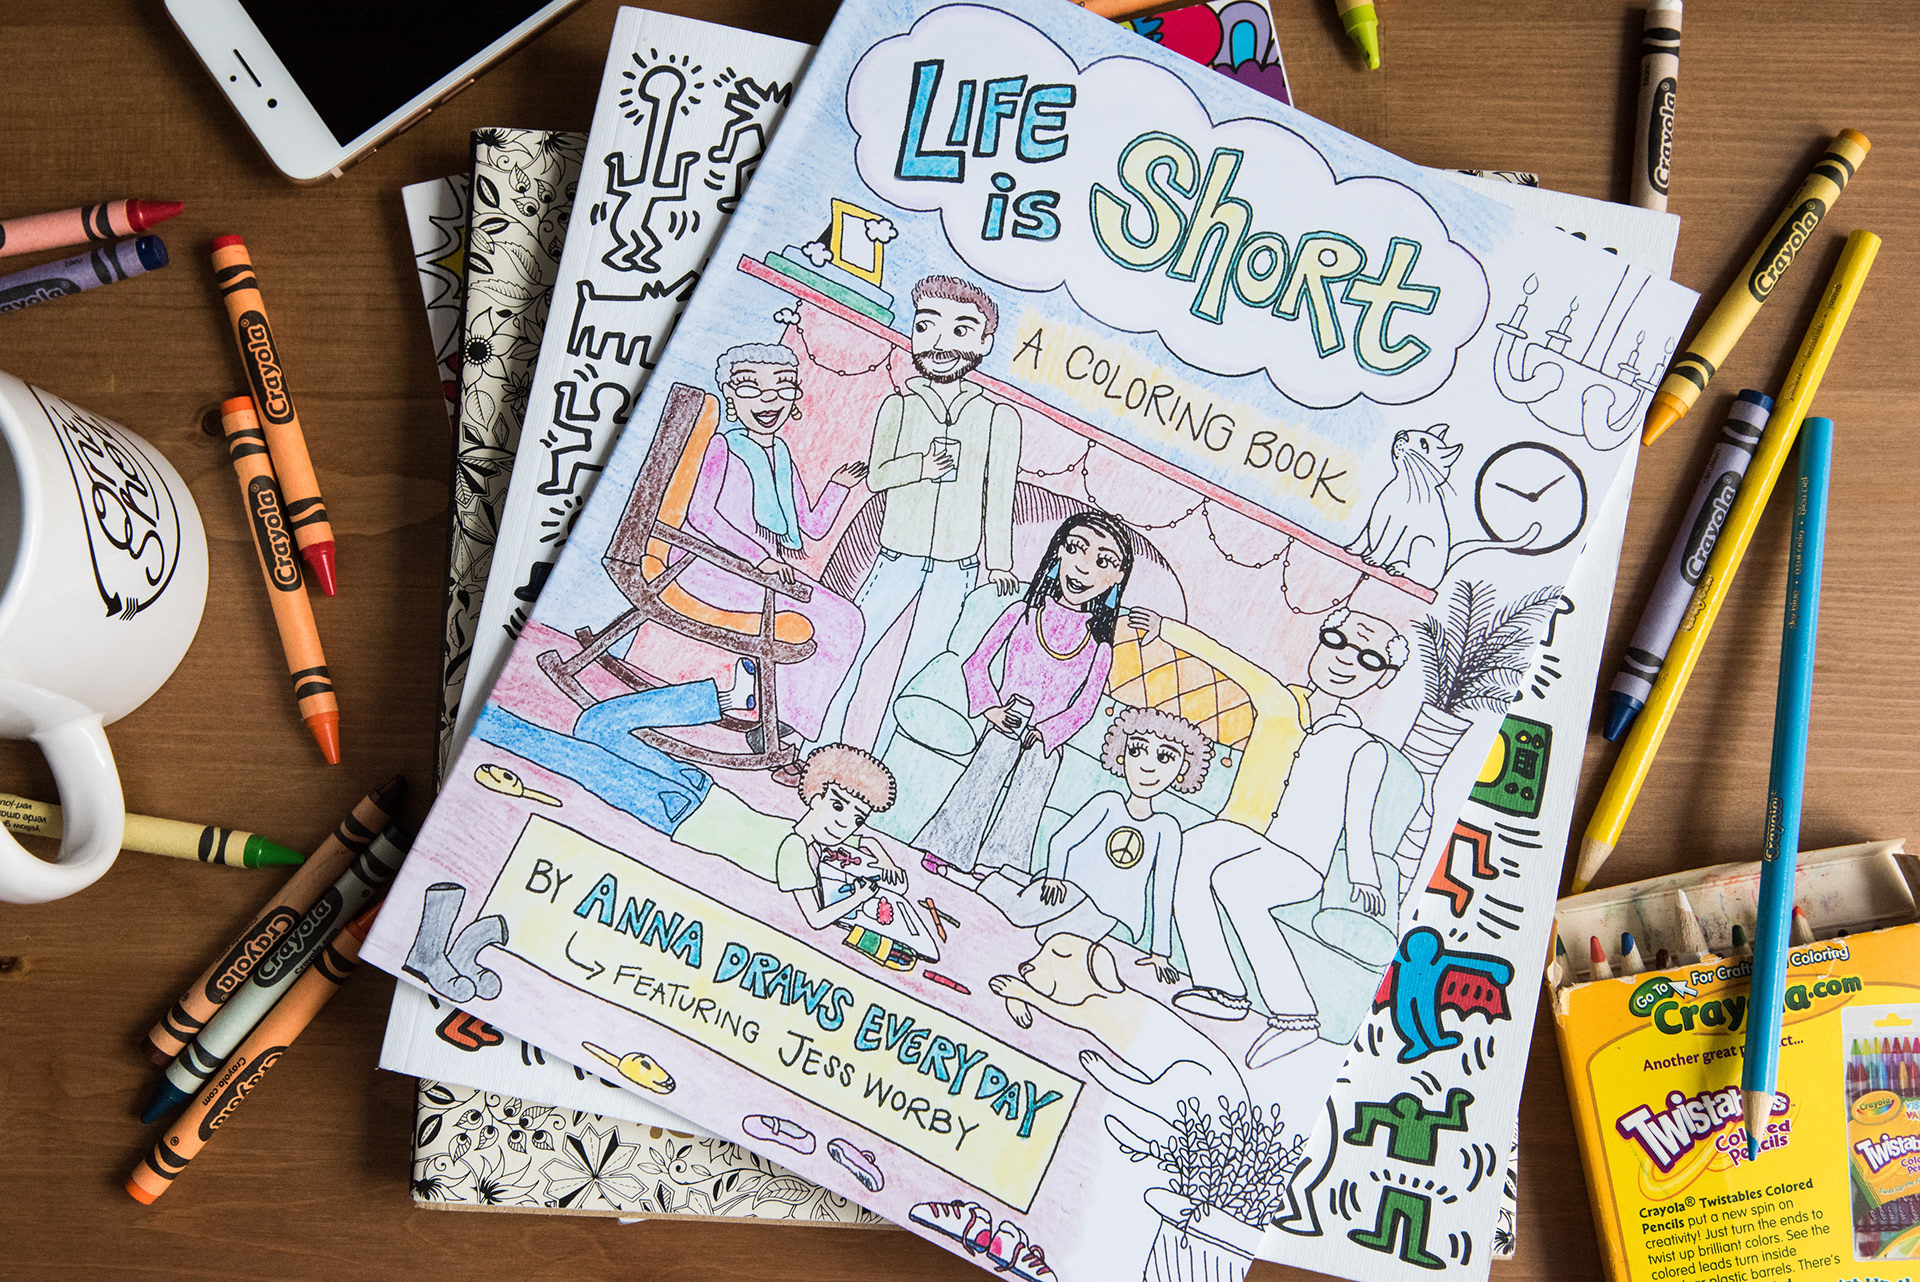 LIFE
is Short
A COLORING BOOK
BY ANNA DRAWS EVERYDAY
FEATURING JESS WORBY
Crayola
Crayola
Crayola
Crayola
Crayola
Crayola
Crayola
Crayola
Crayola
Crayola
Crayola
bleu
One
Shot
verde
Crayola.com
GO TO
For Craft
Coloring
Crayola.com
Another great
Twistables
Colored
Pencils
Crayola® Twistables Colored
Pencils put a new spin on
creativity! Just turn the ends to
twist up brilliant colors. See the
colored leads turn inside
plastic barrels. There's
Crayola
Twistab